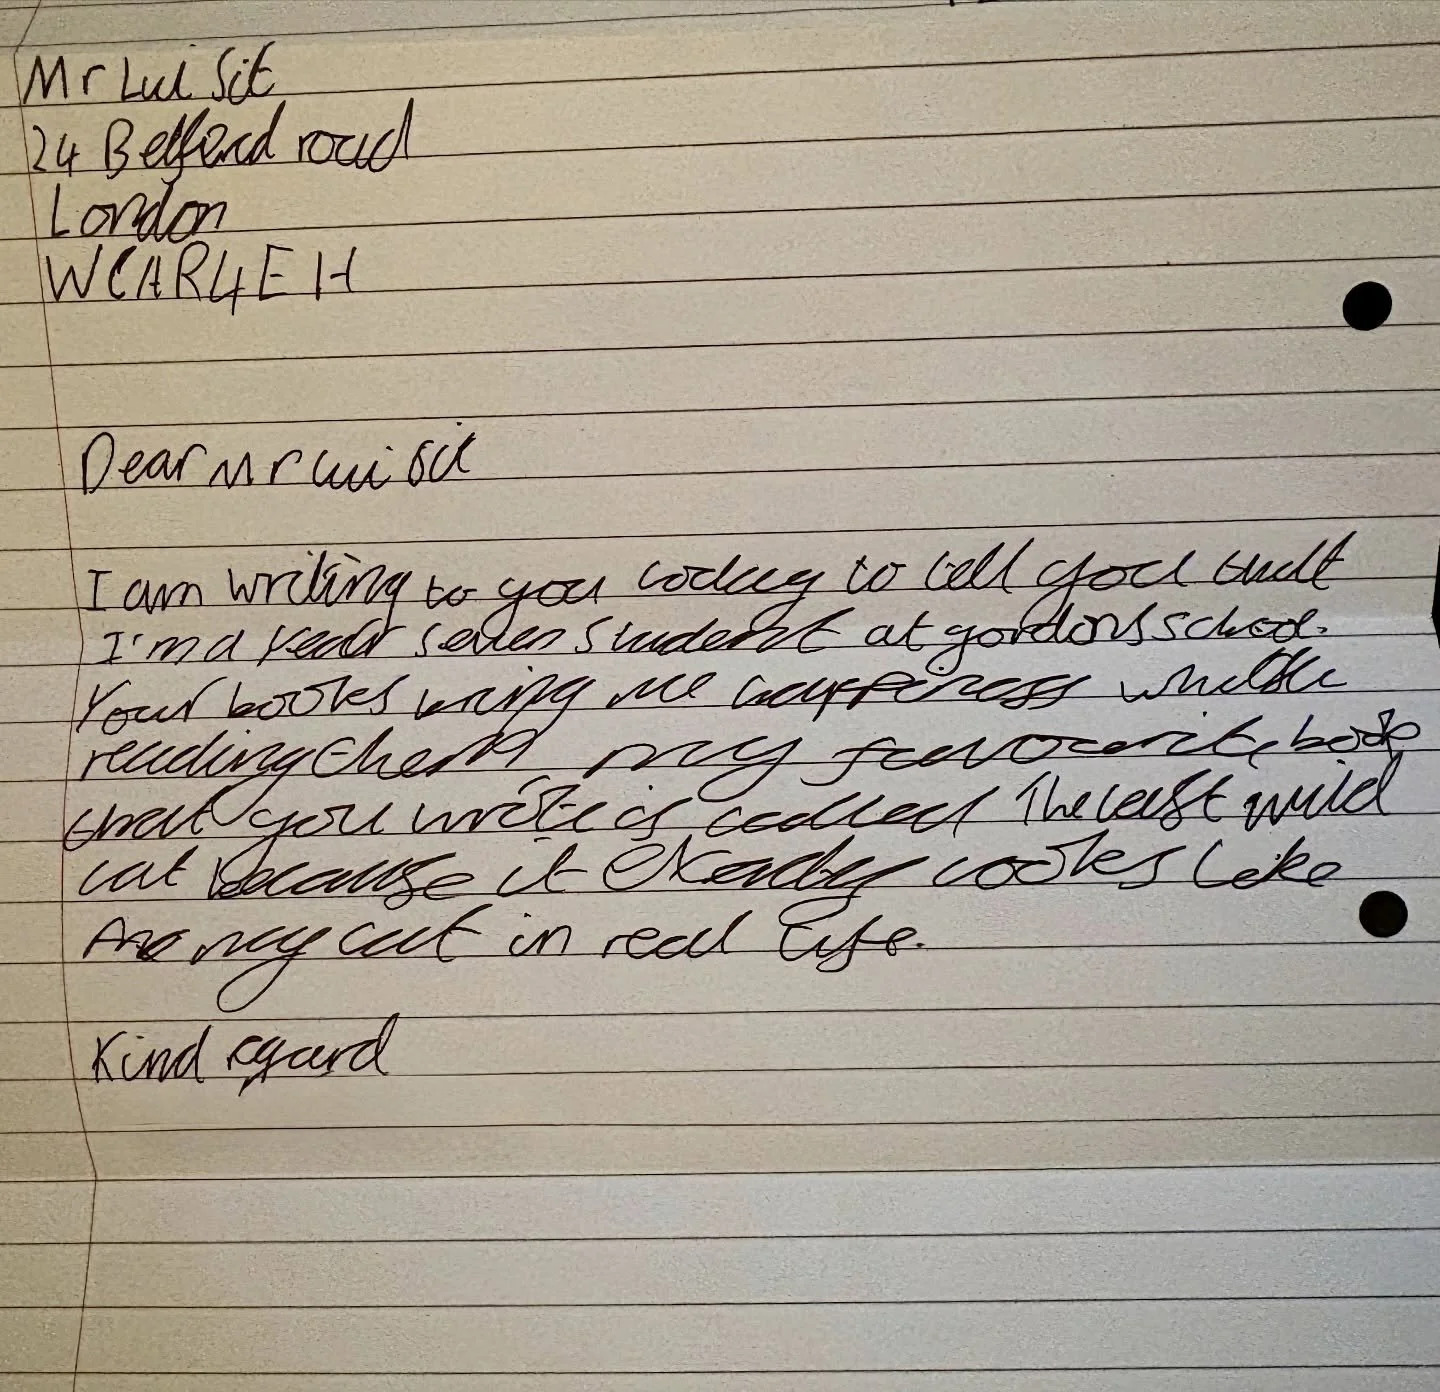 Mr Lui Sit
24 Belferd road
London
WCAR4EH
Dear Mr Lui Sit
I am writing to you today to tell you that
I'm a year seven student at gordons school.
Your books bring me happiness whilst
reading them my favourite book
that you write is called The last wild
cat because it exactly looks like
my cat in real life.
Kind regard